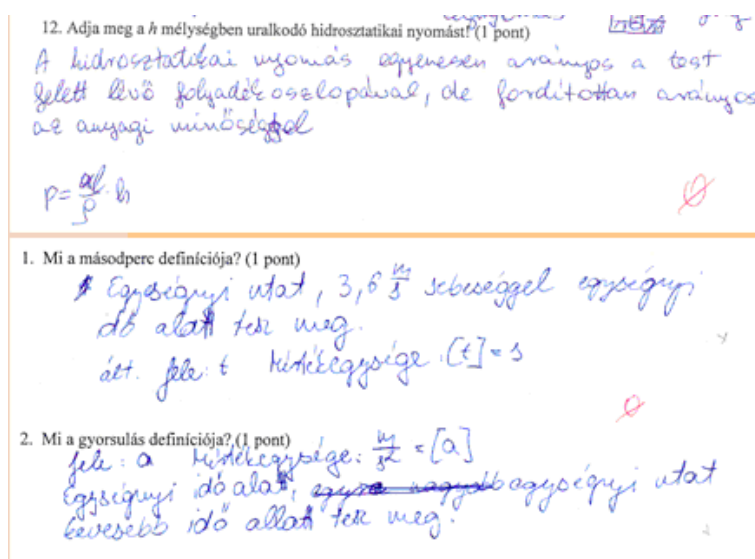 12. Adja meg a h mélységben uralkodó hidrosztatikai nyomást! (1 pont)
A hidrosztatikai nyomás egyenesen arányos a test
felett lévő folyadék oszlopával, de fordítottan arányos
az anyagi minőséggel
P = /ρ · h
1. Mi a másodperc definíciója? (1 pont)
Egységnyi utat, 3,6 m/s sebességgel egységnyi
idő alatt tesz meg.
ált. jele: t Mértékegysége: [t] = s
2. Mi a gyorsulás definíciója? (1 pont)
jele: a Mértékegysége: m/s² = [a]
Egységnyi idő alatt, egységnyi utat
kevesebb idő allatt tesz meg.